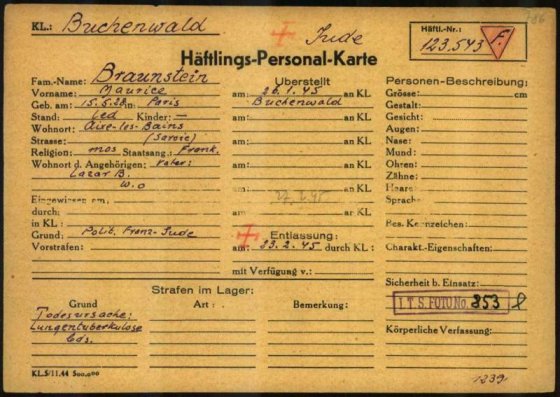 KL.: Buchenwald
Jude
Häftl.-Nr.:
123.543
F.
Häftlings-Personal-Karte
Fam.-Name: Braunstein
Vorname: Maurice
Geb. am: 15.5.28 in Paris
Stand: led Kinder: —
Wohnort: Aixe-les-Bains
Strasse: (Savoie)
Religion: mos Staatsang.: Frank.
Wohnort d. Angehörigen: Vater:
Lazar B.
w.o
Eingewiesen am:
durch:
in KL:
Grund: Polit. Franz-Jude
Vorstrafen:
Überstellt
am: 26.1.45 an KL
Buchenwald
am: an KL
am: an KL
am: an KL
am: an KL
am: an KL
Entlassung:
am: 23.2.45 durch KL:
mit Verfügung v.:
Personen-Beschreibung:
Grösse: cm
Gestalt:
Gesicht:
Augen:
Nase:
Mund:
Ohren:
Zähne:
Haare:
Sprache:
Bes. Kennzeichen:
Charakt.-Eigenschaften:
Sicherheit b. Einsatz:
I.T.S. FOTO No. 353
Körperliche Verfassung:
Strafen im Lager:
Grund Art: Bemerkung:
Todesursache:
Lungentuberkulose
bds.
KL.5/11.44 500.000
1239